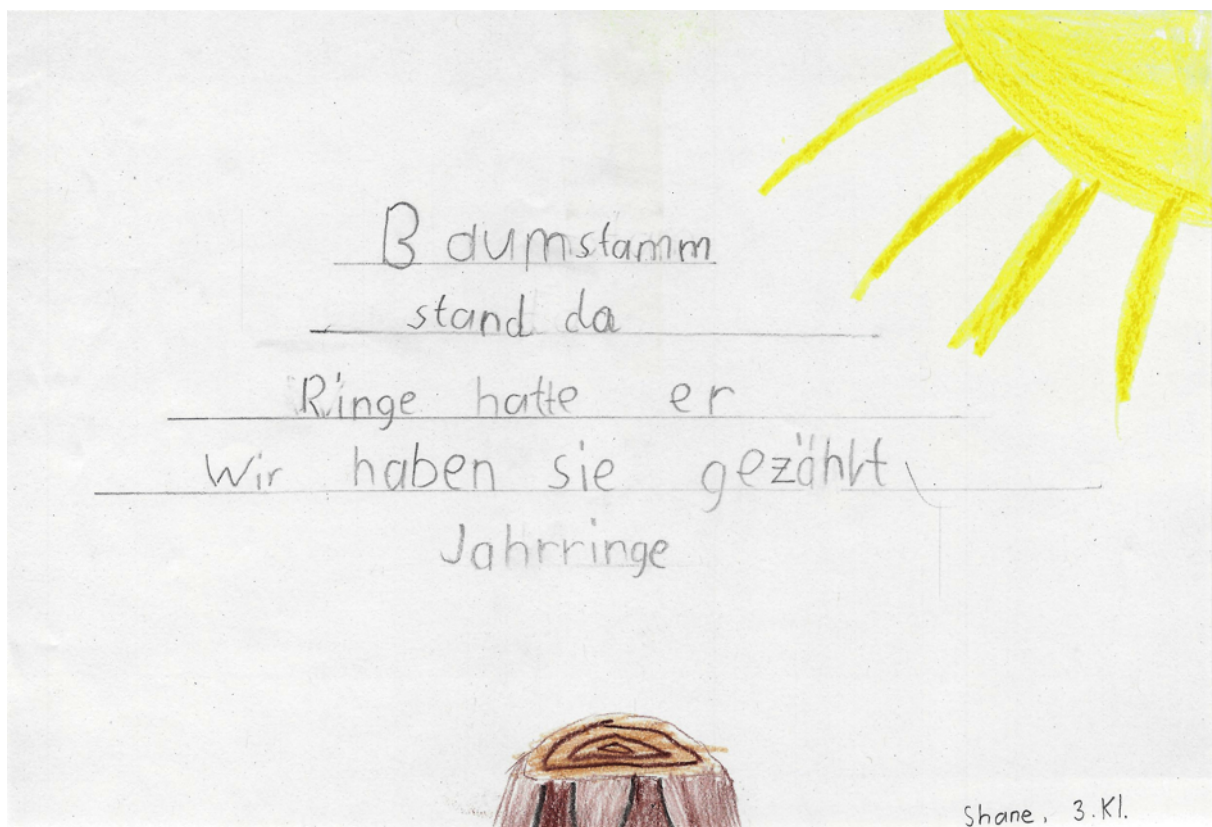 Baumstamm
stand da
Ringe hatte er
Wir haben sie gezählt
Jahrringe
Shane, 3.Kl.